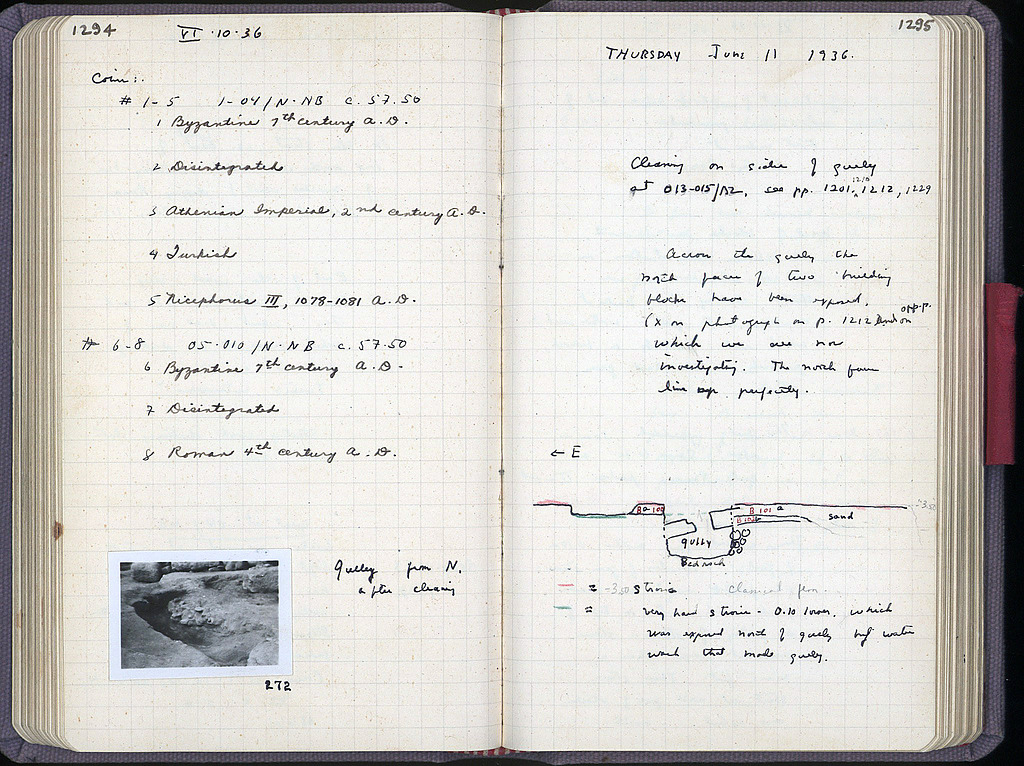 1294
VI·10·36
Coins:
# 1-5 1-04/N-NB c. 57.50
1 Byzantine 7th century A.D.
2 Disintegrated
3 Athenian Imperial, 2nd century A.D.
4 Turkish
5 Nicephorus III, 1078-1081 A.D.
# 6-8 05-010/N-NB c. 57.50
6 Byzantine 7th century A.D.
7 Disintegrated
8 Roman 4th century A.D.
Gulley from N.
after cleaning
272
1295
THURSDAY June 11 1936.
Cleaning on sides of gulley
at 013-015/ , see pp. 1201, 1210, 1212, 1229
Across the gulley the
north faces of two building
blocks have been exposed,
(x on photograph on p. 1212 and on opp. p.
which we are now
investigating. The north faces
line up perfectly.
← E
B 100
B 101 a
B 101
sand
-3.50
gully
Bedrock
= -3.50 strosis classical fm.
= very hard strosis - 0.10 lower, which
was exposed north of gulley by water
wash that made gulley.